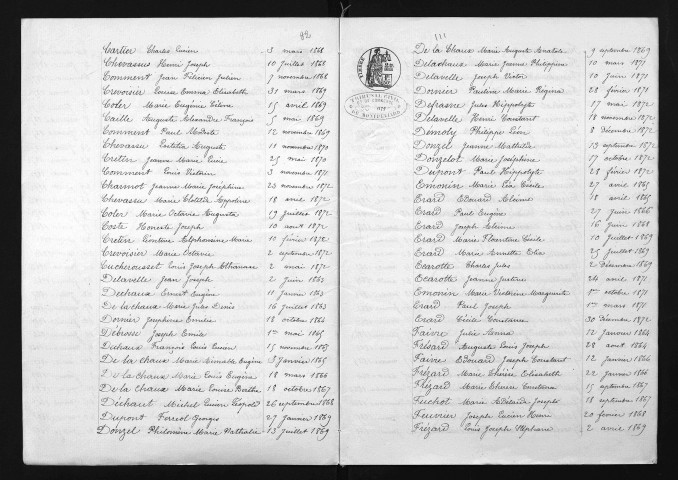 82
Cartier Charles Lucien 3 mars 1868
Chevassus Henri Joseph 10 juillet 1868
Comment Jean Félicien Julien 7 novembre 1868
Crevoisier Louise Emma Elisabeth 31 mars 1869
Coler Marie Eugénie 15 avril 1869
Caille Auguste Alexandre François 5 mai 1869
Comment Paul Modeste 12 novembre 1869
Chevassu Auguste 11 novembre 1870
Cretin Jeanne Marie Lucie 25 mai 1870
Comment Louis Victorin 3 novembre 1871
Charmot Jeanne Marie Joséphine 23 novembre 1872
Chevassu Marie Clotilde 18 avril 1872
Coler Marie Octavie Augusta 19 juillet 1872
Coste Honoré Joseph 10 août 1872
Cretin Léontine Alphonsine Marie 10 février 1872
Crevoisier Marie Octavie 2 septembre 1872
Cucherousset Louis Joseph Athanase 2 mai 1872
Delavelle Jean Joseph 2 juin 1863
Dechaux Ernest Eugène 11 janvier 1863
De la chaux Marie Jules Denis 16 juillet 1863
Dornier Joséphine Emélie 18 octobre 1864
Débrosse Joseph Emile 1er mai 1865
Dechaux François Louis Lucien 15 novembre 1865
De la chaux Marie Aimable Eugène 3 janvier 1865
De la chaux Marie Louis Eugène 18 mars 1866
De la Chaux Marie Louise Berthe 18 octobre 1867
Déchart Michel Lucien Léopold 26 septembre 1868
Dupont Ferréol Georges 27 janvier 1869
Donzel Philomène Marie Nathalie 13 juillet 1869
111
De la Chaux Marie Auguste Anatole 9 septembre 1869
Delachaux Marie Jeanne Philippine 10 mars 1871
Delavelle Joseph Victor 10 juin 1871
Dornier Pauline Marie Regina 28 février 1871
Defrasne Jules Hippolyte 17 mai 1872
Delavelle Henri Constant 18 novembre 1872
Démoly Philippe Léon 8 décembre 1872
Donzel Jeanne Mathilde 13 septembre 1872
Donzelot Marie Joséphine 17 octobre 1872
Dupont Paul Hippolyte 28 février 1872
Emonin Marie Lia Cécile 27 avril 1865
Erard Edouard 18 avril 1865
Erard Paul Eugène 27 juin 1866
Erard Joseph 16 juin 1868
Erard Marie Florentine Cécile 10 juillet 1869
Erard Marie Ernette Elia 25 juillet 1869
Ecarotte Charles Jules 2 Décembre 1869
Ecarotte Jeanne Justine 24 avril 1871
Emonin Marie Victorine Marguerite 1er octobre 1871
Erard Paul Joseph 1er mars 1871
Erard Cécile Constance 30 Décembre 1872
Faivre Julie 12 janvier 1864
Frésard Auguste Louis Joseph 28 août 1864
Faivre Edouard Joseph Constant 12 janvier 1866
Frézard Marie Thérèse Elisabeth 22 janvier 1866
Frézard Marie Constance 15 septembre 1867
Fuchot Marie Joseph 18 septembre 1867
Feuvrier Joseph Lucien Henri 20 février 1868
Frézard Louis Joseph Stéphane 2 avril 1869
TIMBRE
TRIBUNAL CIVIL
DE MONTBÉLIARD